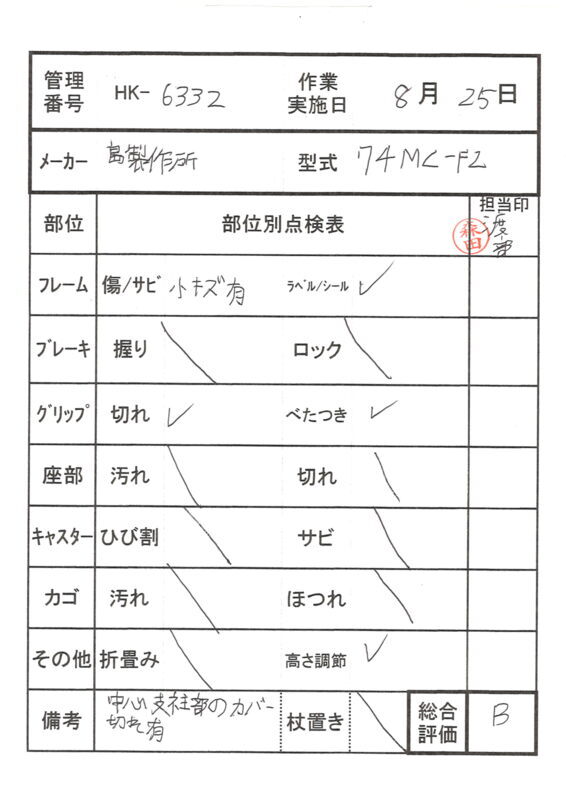 管理番号 HK-6332 作業実施日 8月25日
メーカー 島製作所 型式 74MC-F2
部位 部位別点検表 担当印 森田 渡部
フレーム 傷/サビ 小キズ有 ラベル/シール ✓
ブレーキ 握り \ ロック \
グリップ 切れ ✓ べたつき ✓
座部 汚れ \ 切れ \
キャスター ひび割 \ サビ \
カゴ 汚れ \ ほつれ \
その他 折畳み \ 高さ調節 ✓
備考 中心支柱部のカバー
切れ有
杖置き \ 総合評価 B